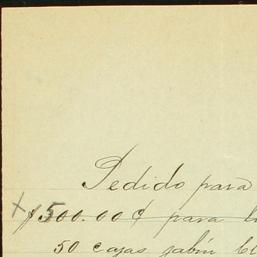 Pedido para
x $500.00¢ para
50 cajas jabón